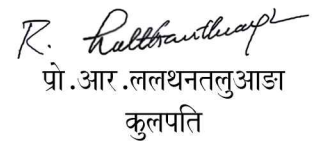 R. Lalthantluanga
प्रो.आर.ललथनतलुआङा
कुलपति